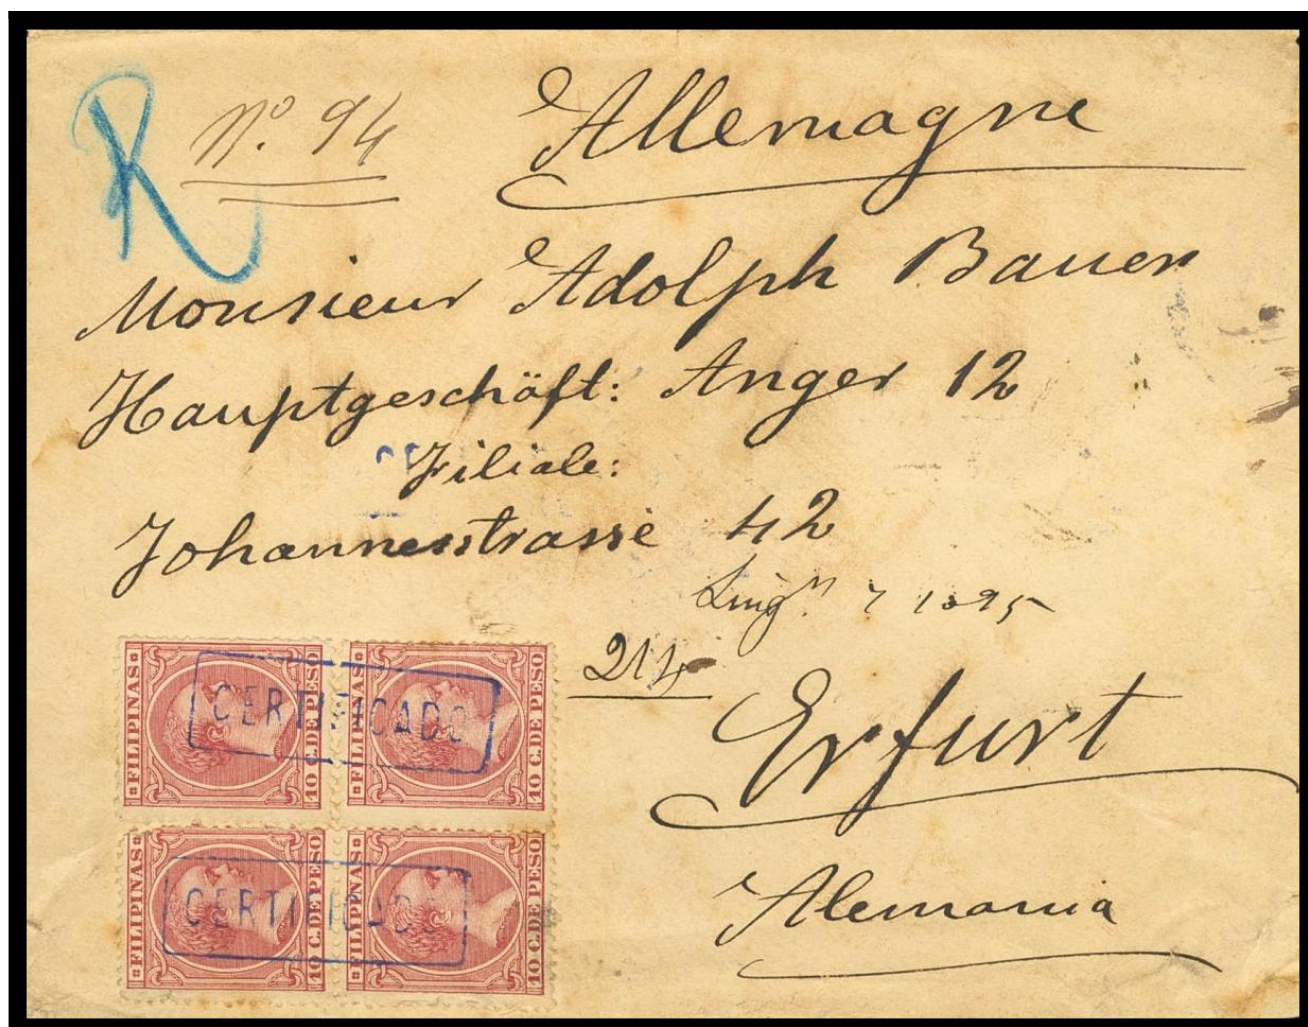 R
Nº. 94
Allemagne
Monsieur Adolph Bauer
Hauptgeschäft: Anger 12
Filiale:
Johannesstrasse 42
7 1895
214
Erfurt
Alemania
FILIPINAS
10 C. DE PESO
FILIPINAS
10 C. DE PESO
CERTIFICADO
FILIPINAS
10 C. DE PESO
FILIPINAS
10 C. DE PESO
CERTIFICADO